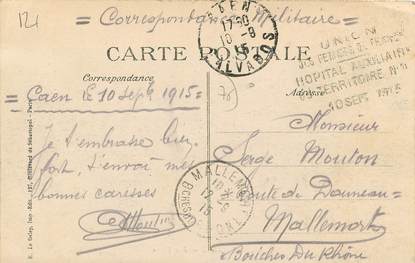 121
= Correspondance Militaire =
CAEN
17 30
10 - 9
15
CALVADOS
CARTE POSTALE
UNION
DES FEMMES DE FRANCE
HOPITAL AUXILIAIRE
DU TERRITOIRE N°
10 SEPT 1915
Correspondance
Adresse
= Caen le 10 Sept 1915 =
Je t'embrasse bien
fort, t'envoi mes
bonnes caresses
Mouton
MALLEMORT
BCHES DU RHONE
12
15
Monsieur
Serge Mouton
Route de
Mallemort
Bouches Du Rhône